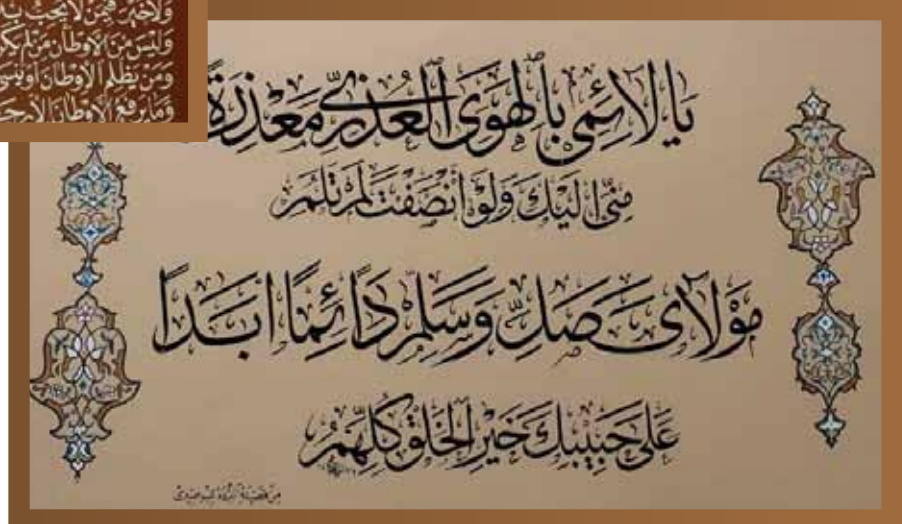 ولاخير فيمن لا يحب
وليس من الأوطان من لم
ومن يظلم الأوطان أو
وما يرفع الأوطان إلا
يَا لَائِمِي بِالْهَوَى الْعُذْرِيِّ مَعْذِرَةً
مِنِّي إِلَيْكَ وَلَوْ أَنْصَفْتَ لَمْ تَلُمِ
مَوْلَايَ صَلِّ وَسَلِّمْ دَائِمًا أَبَدًا
عَلَى حَبِيبِكَ خَيْرِ الْخَلْقِ كُلِّهِمُ
من قصيدة البردة للبوصيري